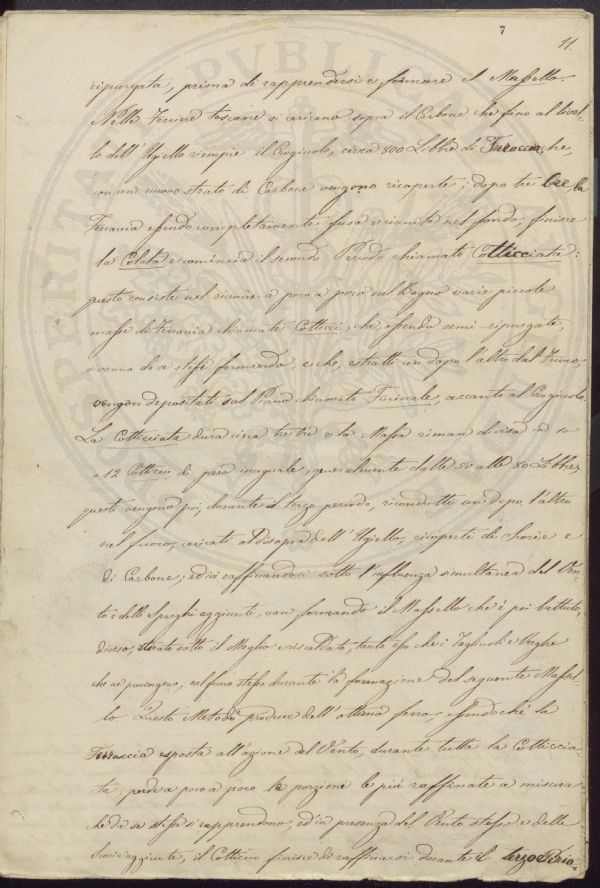 7
11.
ripurgata, prima di rapprendersi e formare il Massello.
Nelle Ferriere toscane si caricano sopra il Carbone che fino al livel-
lo dell'Ugello riempie il Crogiuolo, circa 800 Libbre di Ferraccia, che,
con un nuovo strato di Carbone vengono ricoperte; dopo tre Ore la
Ferraccia essendo completamente fusa e riunita nel fondo, finisce
la Colata e comincia il secondo Periodo chiamato Cotticciata:
questo consiste nel riunire a poco a poco nel Bagno varie piccole
masse di Ferraccia chiamate Cotticci, che essendo semi-ripurgate,
vanno da se stesse formando, e che, estratti un dopo l'altro dal Fuoco,
vengon depositati sul Piano chiamato Fucinale, accanto al Crogiuolo.
La Cotticciata dura circa tre Ore e la Massa riman divisa in 10
o 12 Cotticci di peso inuguale, generalmente dalle 50 alle 80 Libbre;
questi vengono poi, durante il terzo periodo, ricondotti un dopo l'altro
nel fuoco, caricati al Disopra dell'Ugello, ricoperti di Scorie e
di Carbone; ed ivi raffinandosi sotto l'influenza simultanea del Ven-
to e delle Sparghi aggiunte, van formando il Massello che è poi battuto,
diviso, stirato sotto il Maglio e riscaldato, tanto esso che i Tagliuoli e Verghe
che ne provengono, nel fuoco stesso durante la formazione del seguente Massel-
lo. Questo Metodo produce dell'ottimo ferro, essendoché la
Ferraccia esposta all'azione del Vento, durante tutta la Cotticcia-
ta, perde a poco a poco le porzioni le più raffinate a misura
che da se stesse si rapprendono, ed in presenza del Vento stesso e delle
Scorie aggiunte, il Cotticcio finisce di raffinarsi durante il terzo Perio-